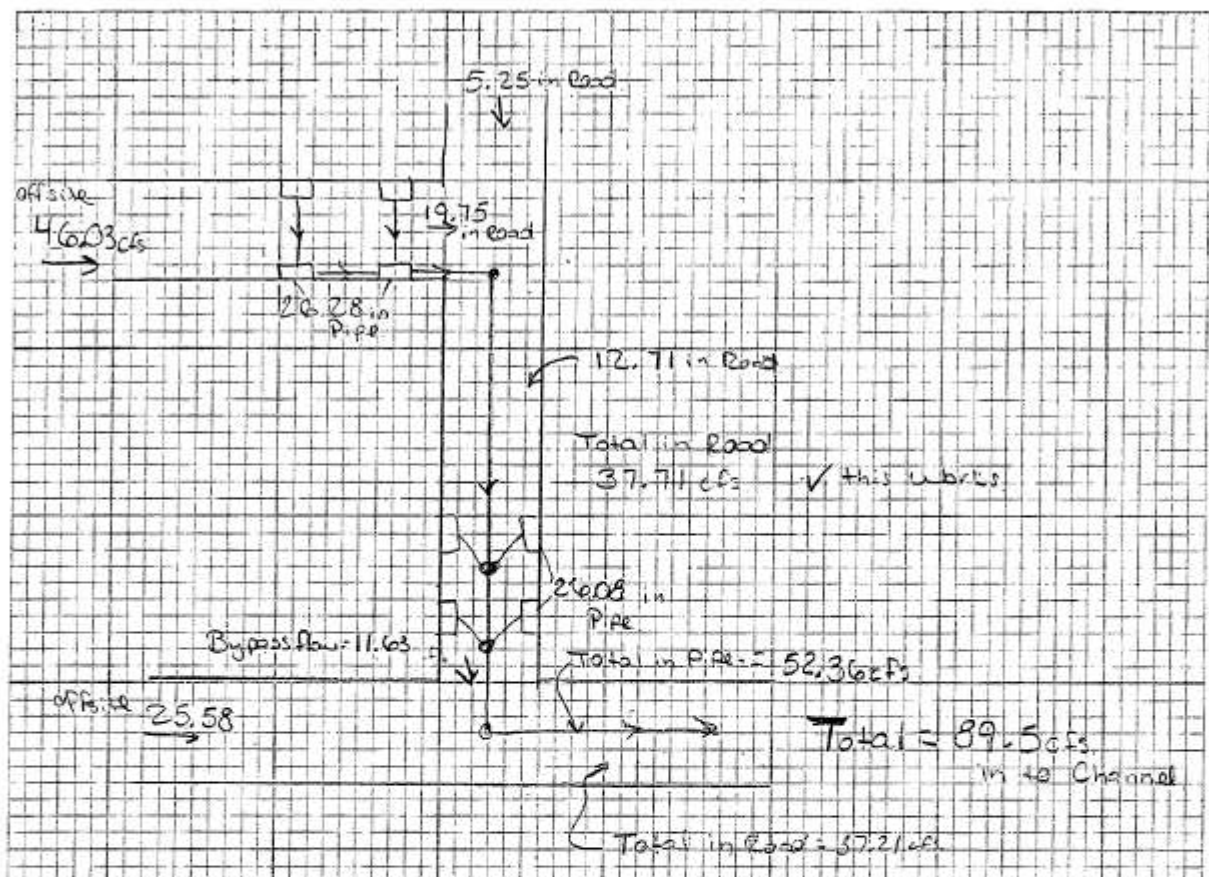 5.25 in Road
offsite
46.03 cfs
19.75
in Road
26.28 in
Pipe
12.71 in Road
Total in Road
37.71 cfs ✓ this works
26.08 in
Pipe
Bypass flow = 11.63
Total in Pipe = 52.36 cfs
offsite 25.58
Total = 89.5 cfs
in to Channel
Total in Road = 37.21 cfs